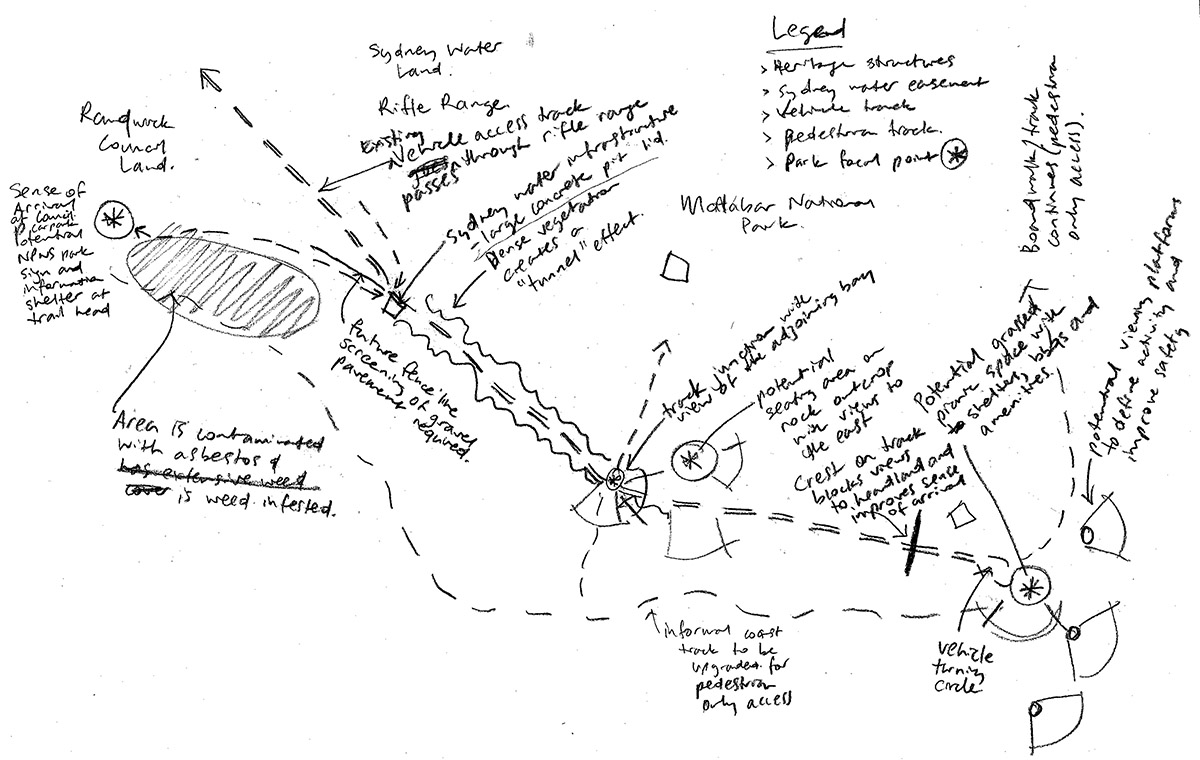 Legend
> Heritage structures
> Sydney water easement
> Vehicle track
> pedestrian track.
> Park focal point
Sydney Water
Land.
Rifle Range.
Existing
Vehicle access track
passes through rifle range
Randwick
Council
Land.
Sense of
Arrival
at council
carpark
Potential
NPWS park
sign and
information
shelter at
trail head
Sydney water infrastructure
- large concrete pit lid.
Dense vegetation
creates a
"tunnel" effect.
Malabar National
Park.
Boardwalk/track
continues (pedestrian
only access).
Future fence line
screening of gravel
pavement
required.
track junction with
view of the adjoining bay
potential
seating area on
rock outcrop
with views to
the east
Crest on track
blocks views
to headland and
improves sense
of arrival
Potential grassed
picnic space with
shelters, bbqs and
amenities.
potential viewing platforms
to define activity and
improve safety
Area is contaminated
with asbestos &
has extensive weed
cover is weed infested.
informal coast
track to be
upgraded for
pedestrian
only access
vehicle
turning
circle